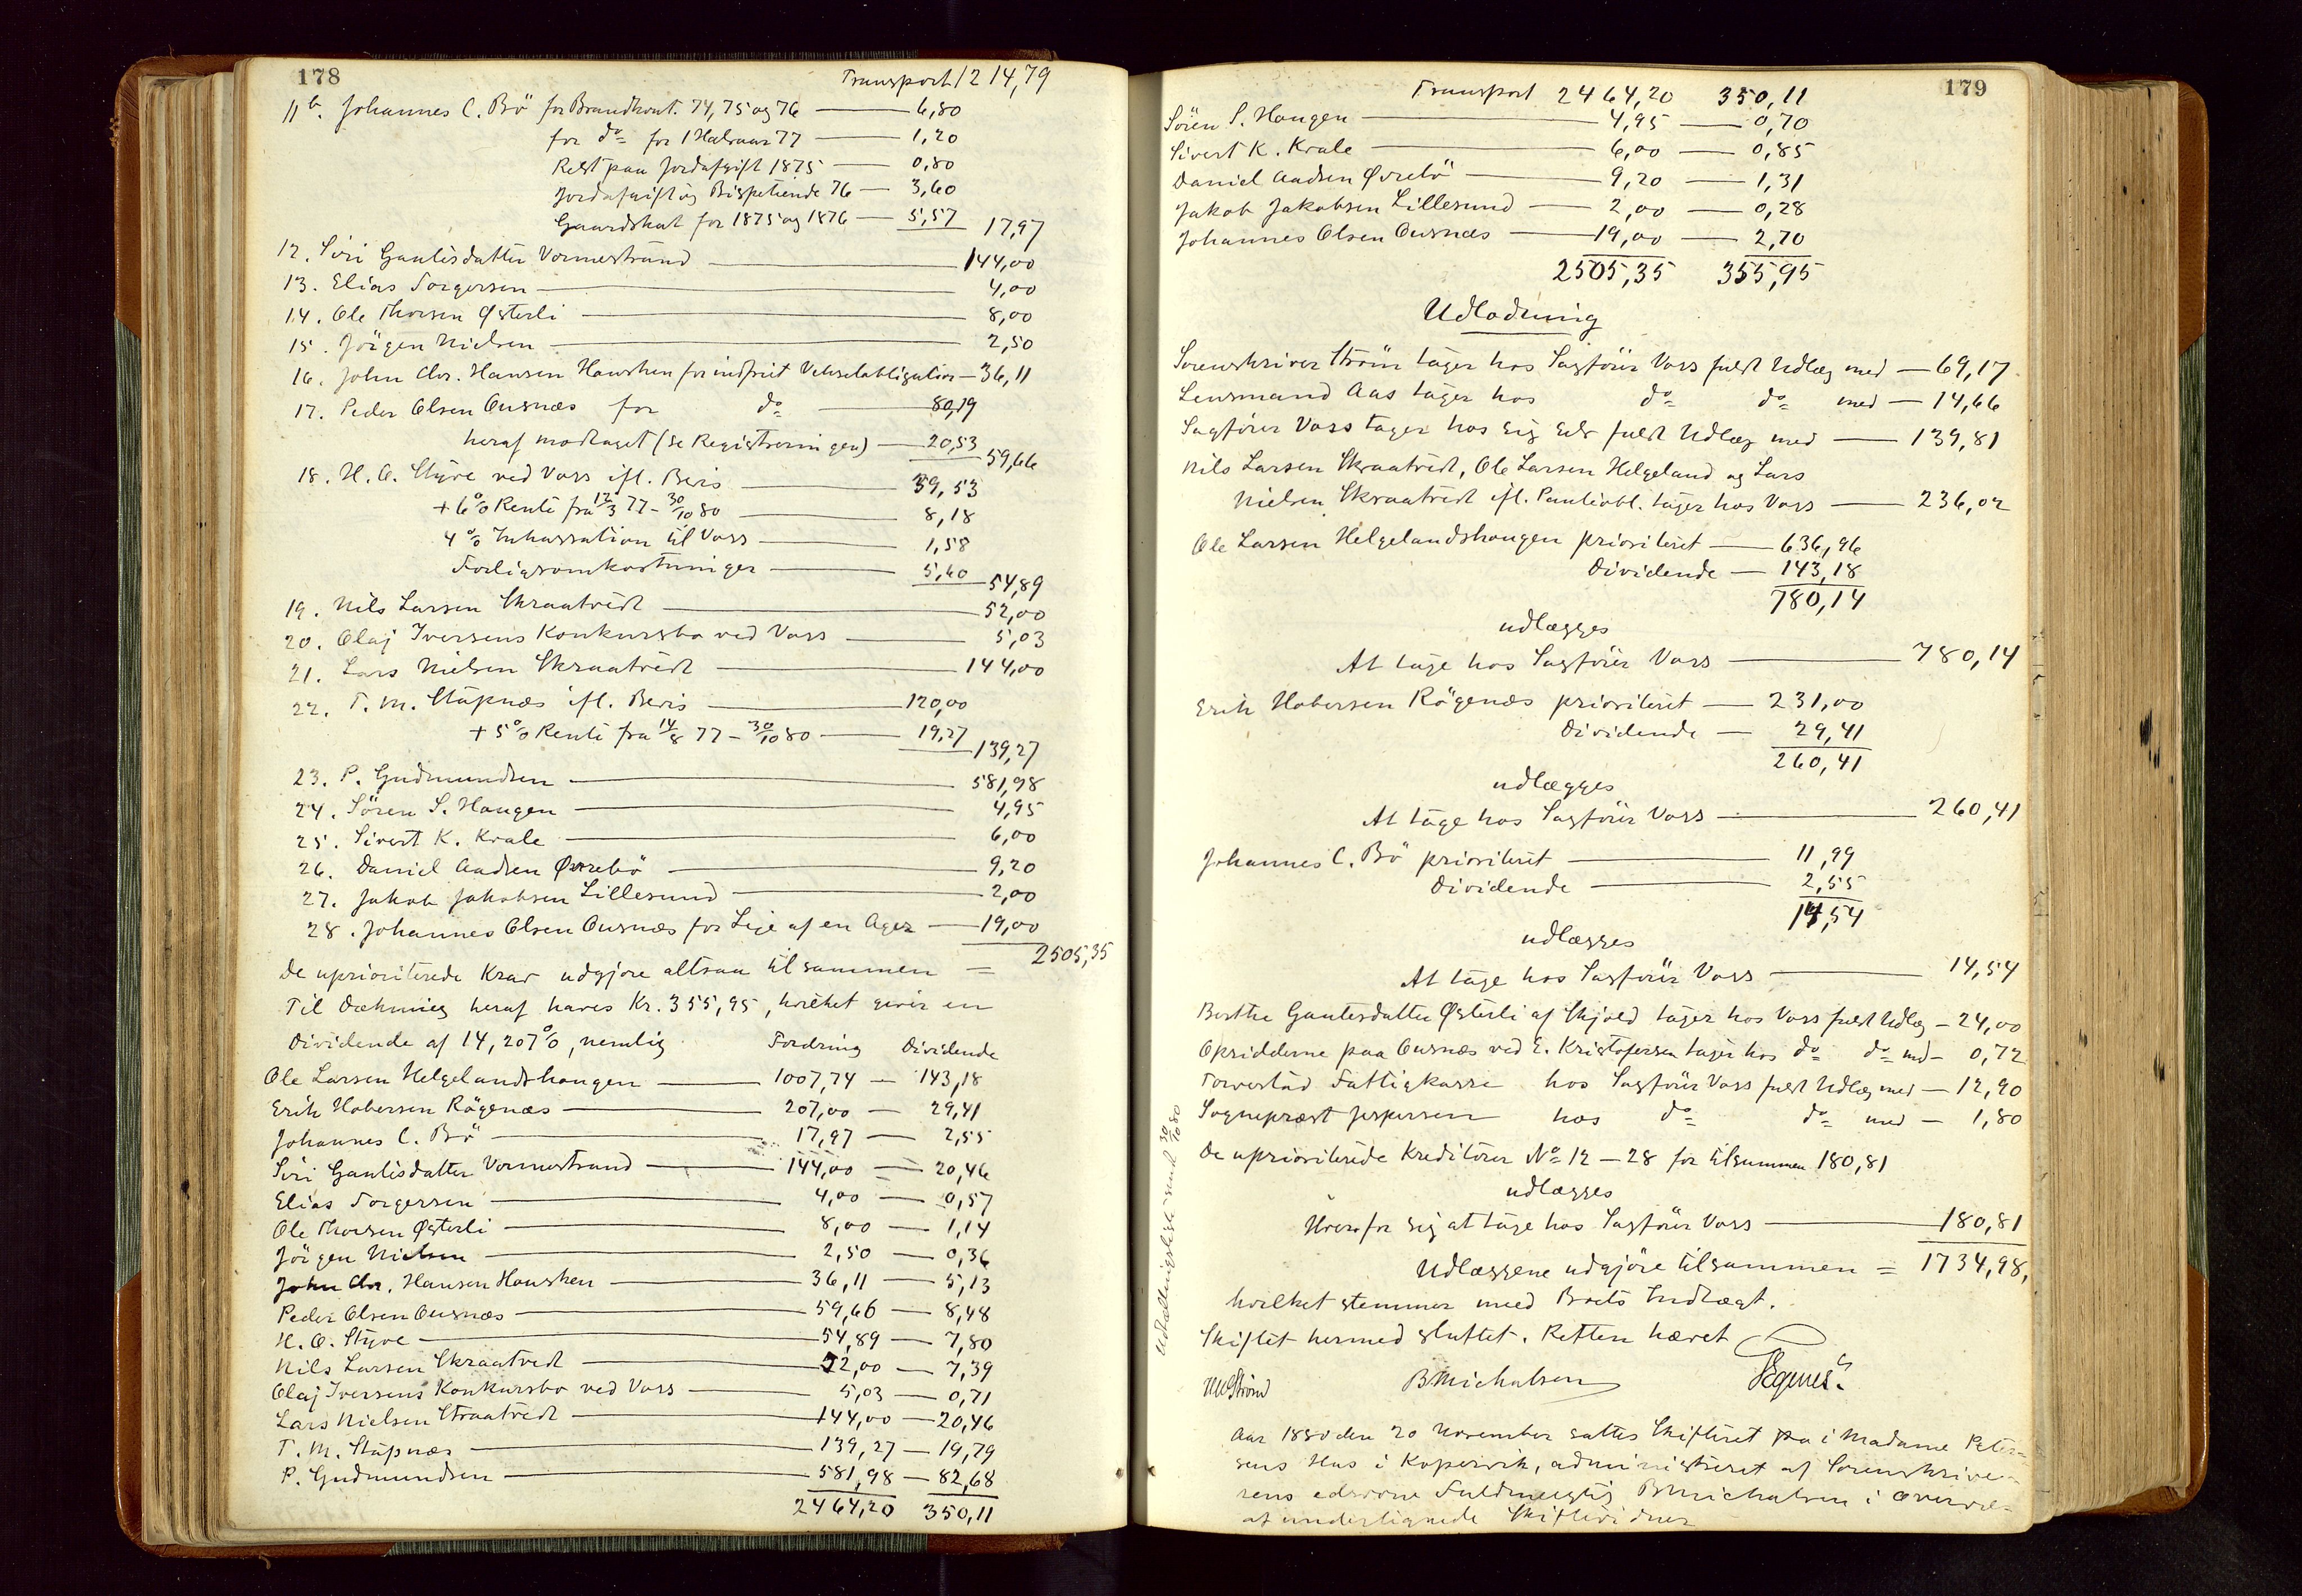 178
Transport 1214,79
11b. Johannes C. Bö for Brandkont. 74, 75 og 76 — 6,80
for do for 1 Halvaar 77 — 1,20
Rest paa Jordafgift 1875 — 0,80
Jordafgift og Bispetiende 76 — 3,60
Gaardskat for 1875 og 1876 — 5,57 17,97
12. Siri Gautesdatter Vormestrand — 144,00
13. Elias Torgersen — 4,00
14. Ole Thorsen Østerli — 8,00
15. Jörgen Nielsen — 2,50
16. John Chr. Hansen Haushen for indfriet Vekselobligation — 36,11
17. Peder Olsen Ousnæs for do — 80,19
heraf modtaget (se Registreringen) — 20,53 59,66
18. H. O. Styve ved Vass ifl. Bevis — 39,53
+ 6% Rente fra 12/3 77 - 30/10 80 — 8,18
4% Inkassation til Vass — 1,58
Forligsomkostninger — 5,60 54,89
19. Nils Larsen Skraatveit — 52,00
20. Olaj Iversens Konkursbo ved Vass — 5,03
21. Lars Nielsen Skraatveit — 144,00
22. T. M. Stapnæs ifl. Bevis — 120,00
+ 5% Rente fra 14/8 77 - 30/10 80 — 19,27 139,27
23. P. Gudmundsen — 581,98
24. Sören S. Haugen — 4,95
25. Sivert K. Krale — 6,00
26. Daniel Aadsen Øvrebö — 9,20
27. Jakob Jakobsen Lillesund — 2,00
28. Johannes Olsen Ousnæs for Leje af en Ager — 19,00
De uprioriterede Krav udgjøre altsaa tilsammen = 2505,35
Til Dækning heraf haves Kr. 355,95, hvilket giver en
Dividende af 14,207%, nemlig Fordring Dividende
Ole Larsen Helgelandshaugen — 1007,74 — 143,18
Erik Haversen Rögenæs — 207,00 — 29,41
Johannes C. Bö — 17,97 — 2,55
Siri Gautesdatter Vormestrand — 144,00 — 20,46
Elias Torgersen — 4,00 — 0,57
Ole Thorsen Østerli — 8,00 — 1,14
Jörgen Nielsen — 2,50 — 0,36
John Chr. Hansen Haushen — 36,11 — 5,13
Peder Olsen Ousnæs — 59,66 — 8,48
H. O. Styve — 54,89 — 7,80
Nils Larsen Skraatveit — 52,00 — 7,39
Olaj Iversens Konkursbo ved Vass — 5,03 — 0,71
Lars Nielsen Skraatveit — 144,00 — 20,46
T. M. Stapnæs — 139,27 — 19,79
P. Gudmundsen — 581,98 — 82,68
2464,20 350,11
179
Transport 2464,20 350,11
Sören S. Haugen — 4,95 — 0,70
Sivert K. Krale — 6,00 — 0,85
Daniel Aadsen Øvrebö — 9,20 — 1,31
Jakob Jakobsen Lillesund — 2,00 — 0,28
Johannes Olsen Ousnæs — 19,00 — 2,70
2505,35 355,95
Udlodning
Sorenskriver Ström tager hos Sagförer Vass fuldt Udlæg med — 69,17
Lensmand Aas tager hos do do med — 14,66
Sagförer Vass tager hos sig selv fuldt Udlæg med — 139,81
Nils Larsen Skraatveit, Ole Larsen Helgeland og Lars
Nielsen Skraatveit ifl. Panteobl. tager hos Vass — 236,02
Ole Larsen Helgelandshaugen prioriteret — 636,96
Dividende — 143,18
780,14
udlægges
At tage hos Sagförer Vass — 780,14
Erik Haversen Rögenæs prioriteret — 231,00
Dividende — 29,41
260,41
udlægges
At tage hos Sagförer Vass — 260,41
Johannes C. Bö prioriteret — 11,99
Dividende — 2,55
14,54
udlægges
At tage hos Sagförer Vass — 14,54
Berthe Gautesdatter Østerli af Skjold tager hos Vass fuldt Udlæg — 24,00
Opsidderne paa Ousnæs ved E. Kristofersen tager hos do do med — 0,72
Torvestad Fattigkasse hos Sagförer Vass fuldt Udlæg med — 12,90
Sognepræst Jespersen hos do do med — 1,80
De uprioriterede Kreditorer No 12 — 28 for tilsammen 180,81
udlægges
Hver for sig at tage hos Sagförer Vass — 180,81
Udlæggene udgjöre tilsammen = 1734,98,
hvilket stemmer med Boets Indtægt.
Skiftet hermed sluttet. Retten hævet
Ström BMichalsen
Udtællingsliste sendt 30/10 80
Aar 1880 den 20 November sattes Skifteret paa i Madame Peter-
sens Hus i Kopervik, administreret af Sorenskrive-
rens edsvorne Fuldmægtig BMichalsen i Overvæ-
af underlignede Skiftevidner